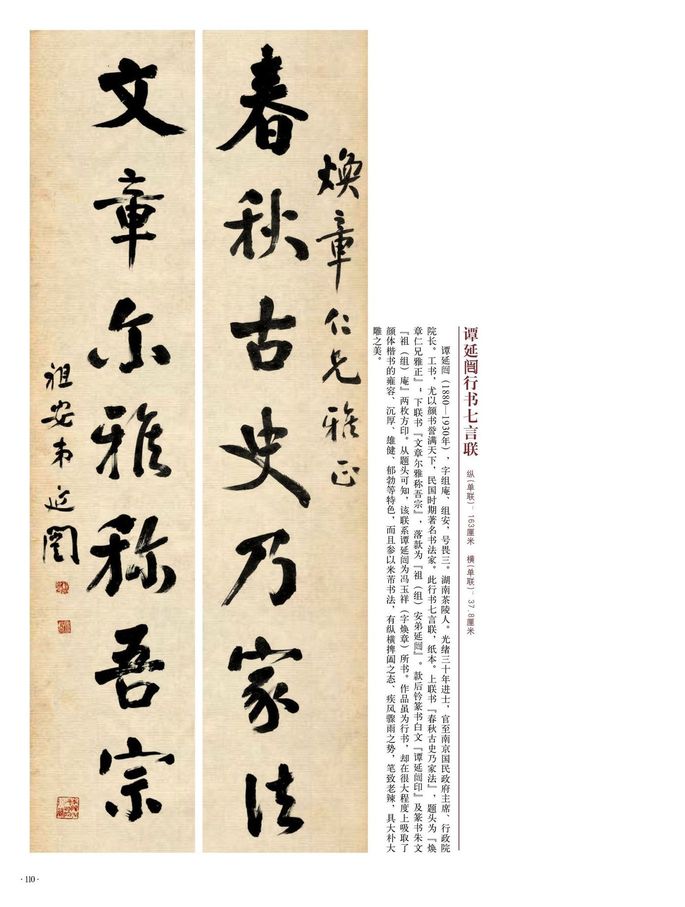 谭延闿行书七言联
纵(单联)：163厘米 横(单联)：37.8厘米
谭延闿（1880—1930年），字组庵、组安，号畏三。湖南茶陵人。光绪三十年进士，官至南京国民政府主席、行政院
院长。工书，尤以颜书誉满天下，民国时期著名书法家。此行书七言联，纸本。上联书『春秋古史乃家法』，题头为『焕
章仁兄雅正』；下联书『文章尔雅称吾宗』，落款为『祖（组）安弟延闿』。款后钤篆书白文『谭延闿印』及篆书朱文
『祖（组）庵』两枚方印。从题头可知，该联系谭延闿为冯玉祥（字焕章）所书。作品虽为行书，却在很大程度上吸取了
颜体楷书的雍容、沉厚、雄健、郁勃等特色，而且参以米芾书法，有纵横捭阖之态、疾风骤雨之势，笔致老辣，具大朴大
雕之美。
焕章仁兄雅正
春秋古史乃家法
文章尔雅称吾宗
祖安弟延闿
· 110 ·